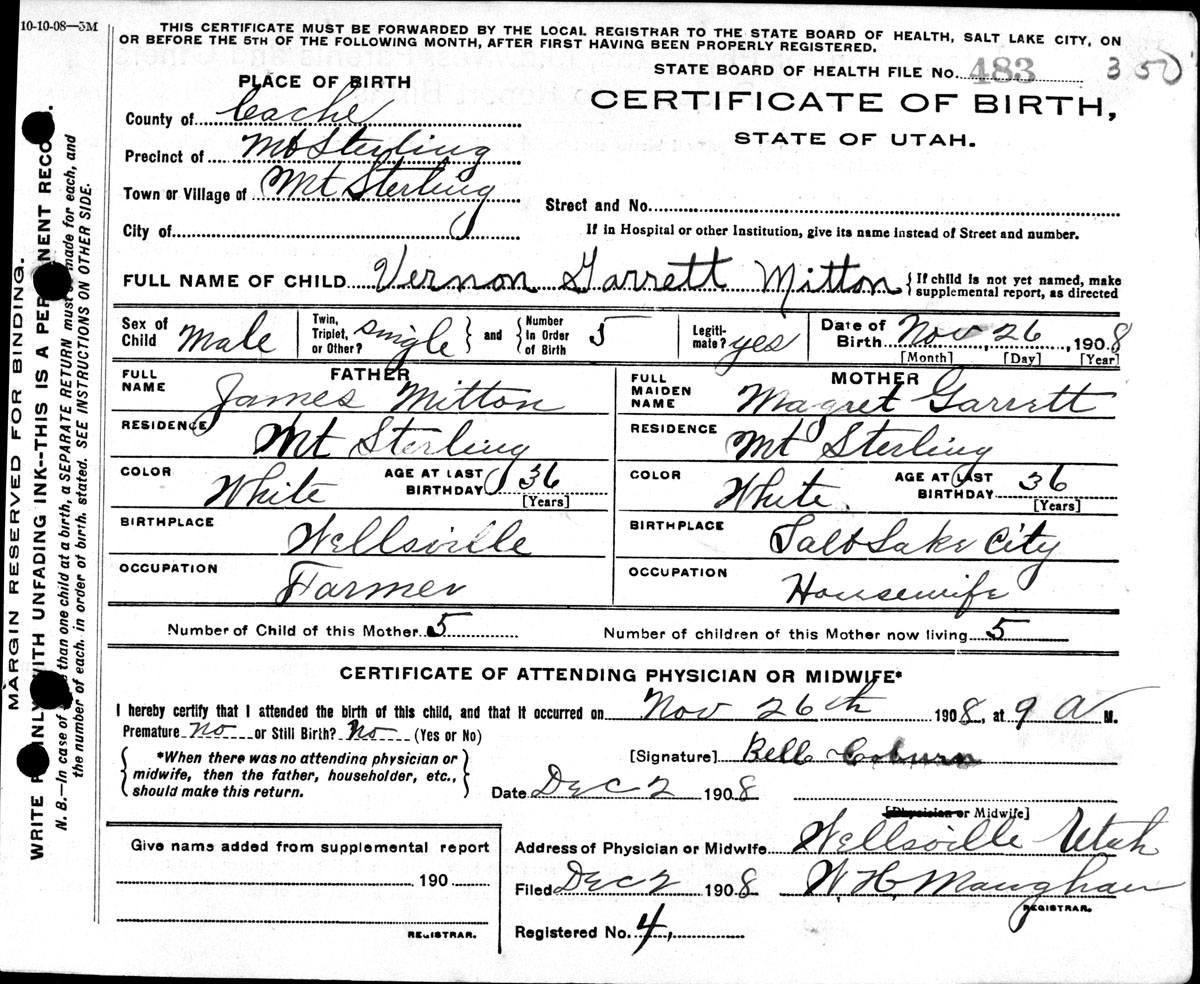 10-10-08—5M
THIS CERTIFICATE MUST BE FORWARDED BY THE LOCAL REGISTRAR TO THE STATE BOARD OF HEALTH, SALT LAKE CITY, ON
OR BEFORE THE 5TH OF THE FOLLOWING MONTH, AFTER FIRST HAVING BEEN PROPERLY REGISTERED.
STATE BOARD OF HEALTH FILE No. 483 350
PLACE OF BIRTH
CERTIFICATE OF BIRTH,
STATE OF UTAH.
County of Cache
Precinct of Mt Sterling
Town or Village of Mt Sterling
Street and No.
City of
If in Hospital or other Institution, give its name instead of Street and number.
FULL NAME OF CHILD Vernon Garrett Mitton {If child is not yet named, make
supplemental report, as directed
Sex of Child Male
Twin, Triplet, or Other? single } and { Number In Order of Birth 5
Legitimate? yes
Date of Birth Nov, 26, 1908
[Month] [Day] [Year]
FATHER
FULL NAME James Mitton
RESIDENCE Mt Sterling
COLOR White AGE AT LAST BIRTHDAY 36
[Years]
BIRTHPLACE Wellsville
OCCUPATION Farmer
MOTHER
FULL MAIDEN NAME Magret Garrett
RESIDENCE Mt Sterling
COLOR White. AGE AT LAST BIRTHDAY 36
[Years]
BIRTHPLACE Salt Lake City
OCCUPATION Housewife
Number of Child of this Mother 5 Number of children of this Mother now living 5
CERTIFICATE OF ATTENDING PHYSICIAN OR MIDWIFE*
I hereby certify that I attended the birth of this child, and that it occurred on Nov 26th 1908, at 9 A M.
Premature No or Still Birth? No (Yes or No)
{ *When there was no attending physician or
midwife, then the father, householder, etc.,
should make this return. }
[Signature] Bell Coburn
Date Dec 2 1908
[Physician or Midwife]
Give name added from supplemental report
190
REGISTRAR.
Address of Physician or Midwife Wellsville Utah
Filed Dec 2 1908 W. H. Maughan
REGISTRAR.
Registered No. 4,
MARGIN RESERVED FOR BINDING.
WRITE WITH UNFADING INK--THIS IS A RECORD.
N. B.—In case of than one child at a birth, a SEPARATE RETURN must made for each, and
the number of each, in order of birth, stated. SEE INSTRUCTIONS ON OTHER SIDE.